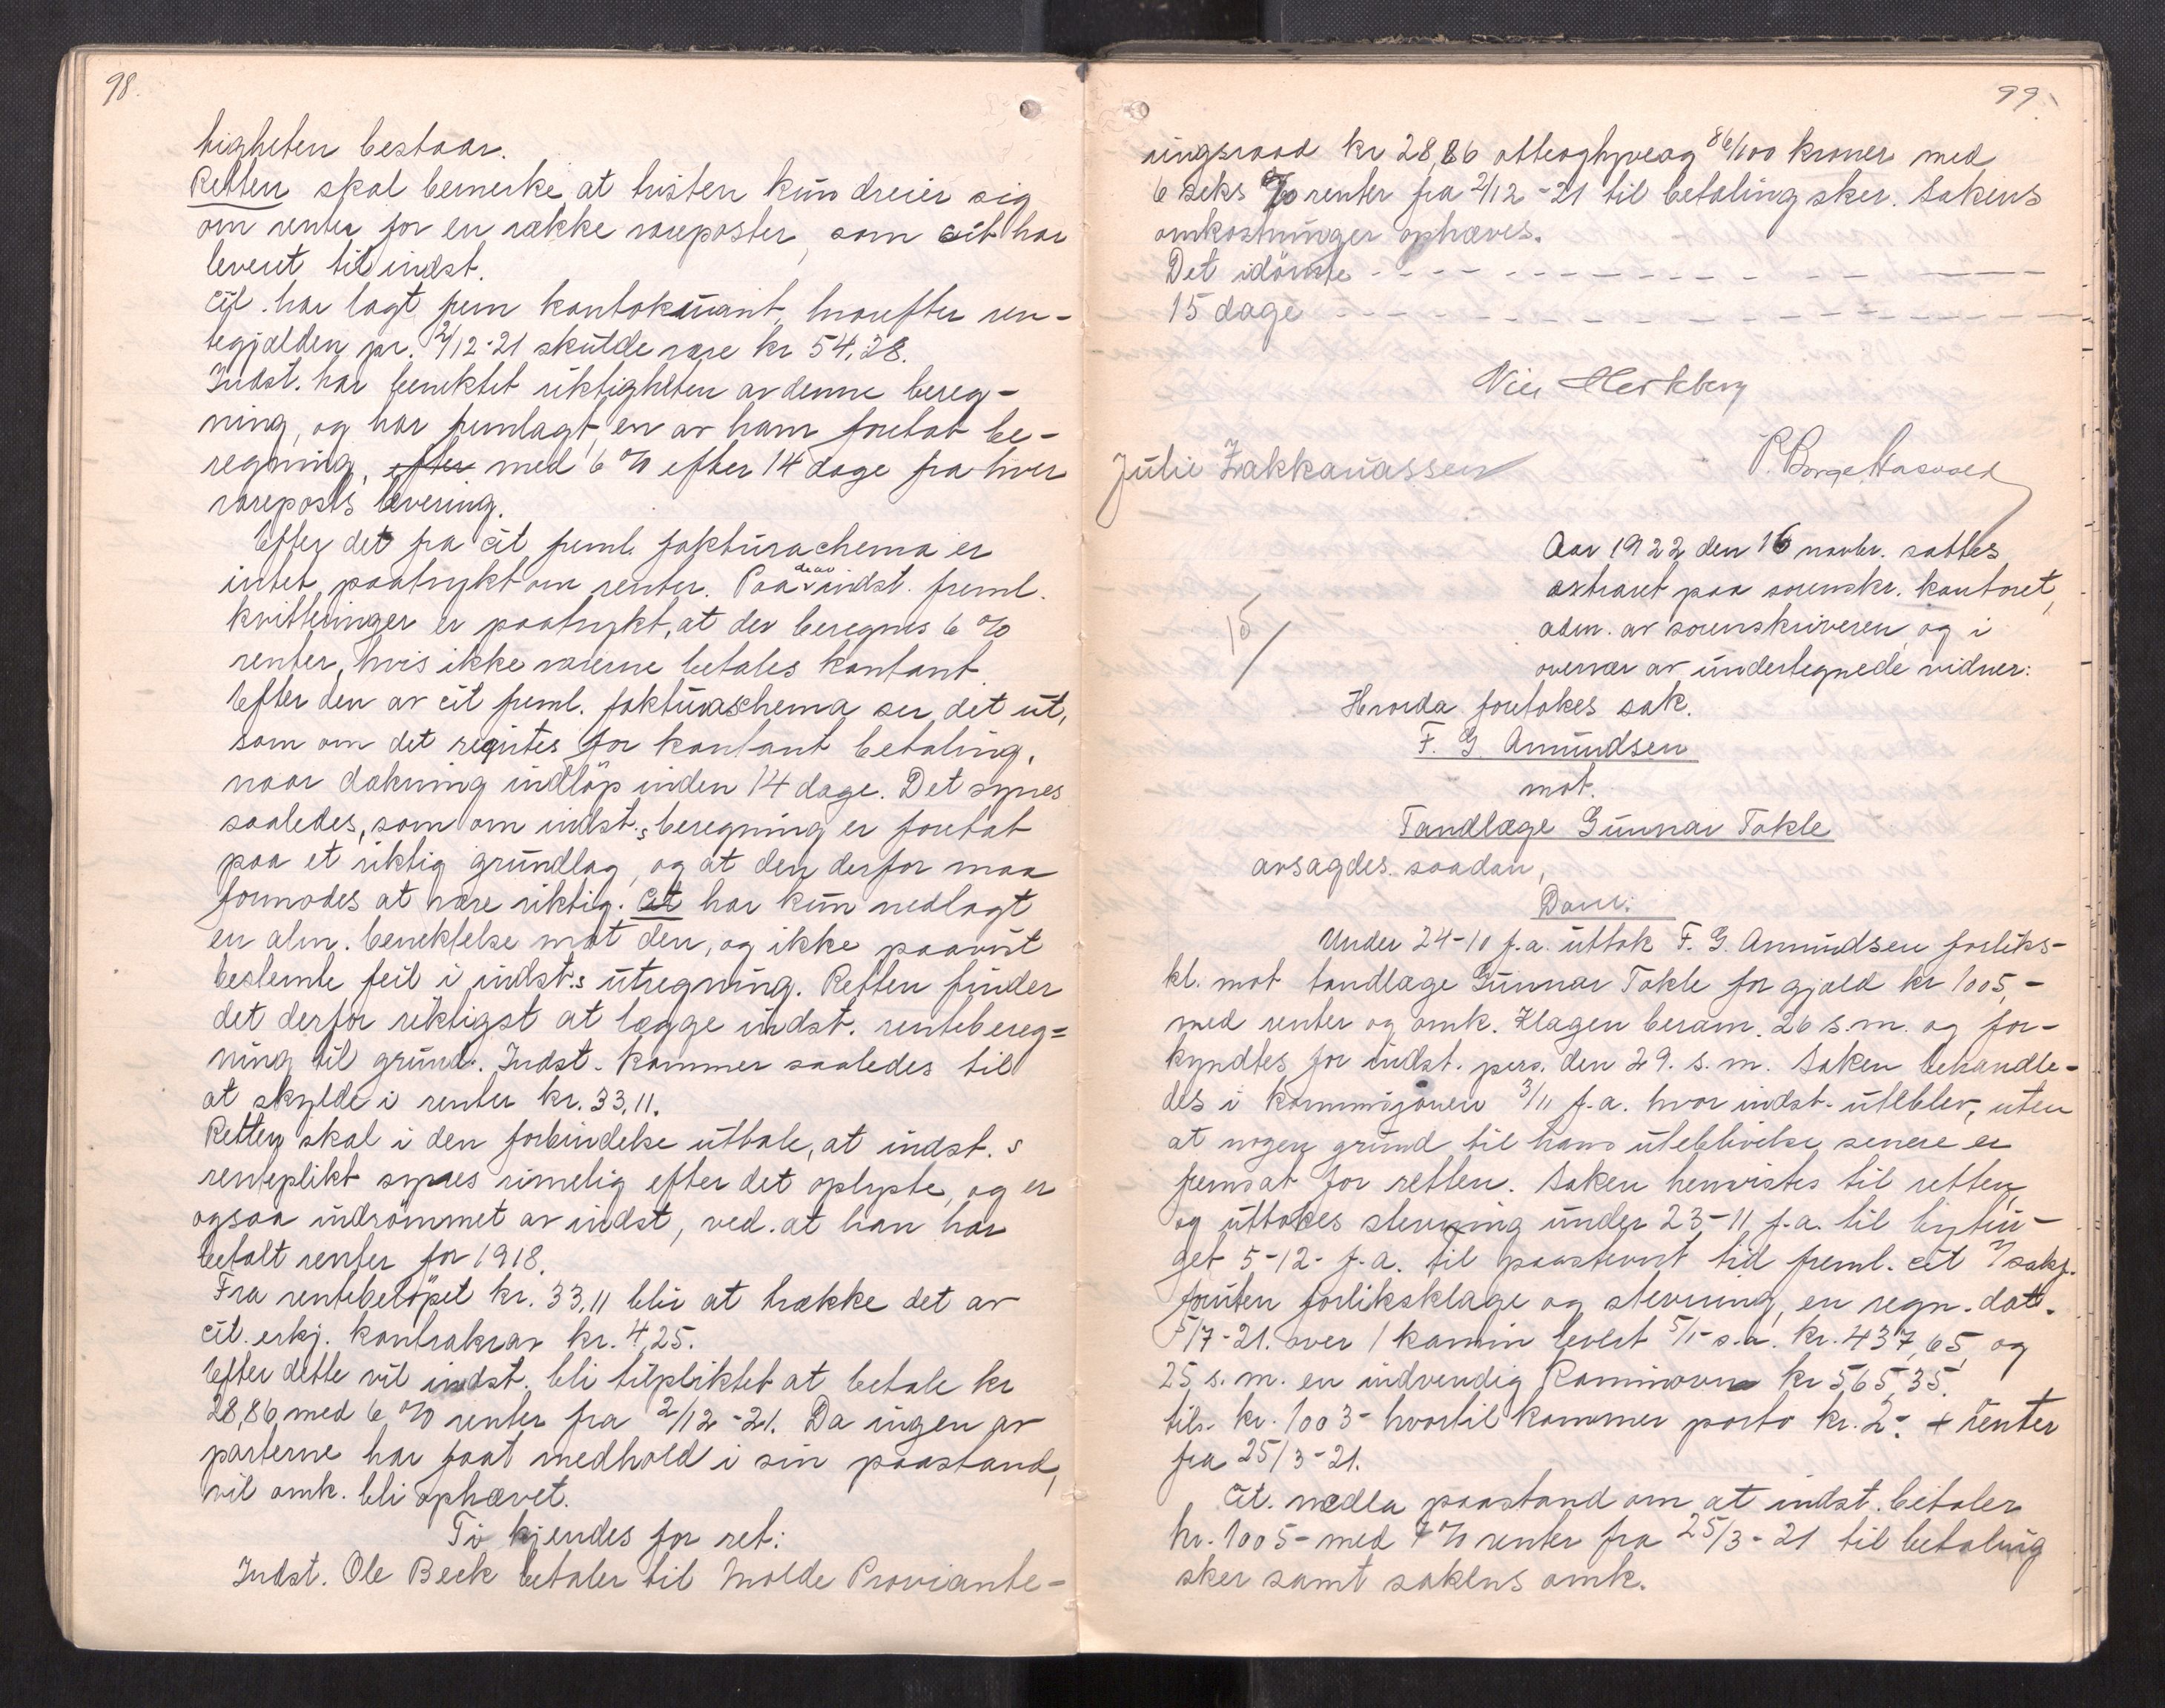 98.
tigheten bestaar.
Retten skal bemerke at tvisten kun dreier sig
om renter for en række vareposter, som cit har
leveret til indst.
Cit. har lagt frem kontokurant, hvorefter ren-
tegjælden pr. 2/12-21 skulde være kr 54,38.
Indst. har benektet riktigheten av denne bereg-
ning, og har fremlagt en av ham foretat be-
regning, efter med 6 % efter 14 dage fra hver
vareposts levering.
Efter det fra cit freml. fakturachema er
intet paatrykt om renter. Paa de av indst. freml.
kvitteringer er paatrykt, at der beregnes 6 %
renter, hvis ikke varerne betales kontant.
Efter den av cit freml. fakturaschema ser det ut,
som om det regntes for kontant betaling,
naar dækning indløp inden 14 dage. Det synes
saaledes, som om indst.s beregning er foretat
paa et riktig grundlag, og at den derfor maa
formodes at være riktig. Cit har kun nedlagt
en alm. benektelse mot den, og ikke paavist
bestemte feil i indst.s utregning. Retten finder
det derfor riktigst at lægge indst. rentebereg=
ning til grund. Indst. kommer saaledes til
at skylde i renter kr. 33,11.
Retten skal i den forbindelse uttale, at indst.s
renteplikt synes rimelig efter det oplyste, og er
ogsaa indrømmet av indst, ved at han har
betalt renter for 1918.
Fra rentebeløpet kr. 33,11 blir at trække det av
cit. erkj. kontrakrav kr. 4,25.
Efter dette vil indst. bli tilpliktet at betale kr
28,86 med 6 % renter fra 2/12-21. Da ingen av
parterne har faat medhold i sin paastand,
vil omk. bli ophævet.
Ti kjendes for ret:
Indst. Ole Beck betaler til Molde Proviante-
99.
ringsraad kr 28,86 otteogtyveog 86/100 kroner med
6 seks % renter fra 2/12-21 til betaling sker. Sakens
omkostninger ophæves.
Det idømte - - - - - - - -
15 dage - - - - - - - -
Julie Zakkariassen
Aar 1922 den 16 novbr. sattes
extraret paa sorenskr. kontoret,
adm. av sorenskriveren og i
overvær av undertegnede vidner:
15/
Hvorda foretokes sak.
F. G. Amundsen
mot.
Tandlæge Gunnar Tokle
avsagdes saadan,
Dom:
Under 24-10 f.a. uttok F. G. Amundsen forliks-
kl. mot tandlæge Gunnar Tokle for gjæld kr 1005,-
med renter og omk. Klagen beram. 26 s.m. og for-
kyndtes for indst. pers. den 29. s.m. Saken behandle-
des i kommisjonen 3/11 f.a. hvor indst. uteblev, uten
at nogen grund til hans uteblivelse senere er
fremsat for retten. Saken henvistes til retten,
og uttokes stevning under 23-11 f.a. til bytin-
get 5-12- f.a. til paastevnt tid freml. cit v/sakf.
foruten forliksklage og stevning, en regn. dat.
5/7-21. over 1 kamin levert 5/1- s.a. kr. 437,65 og
25 s.m. en indvendig Kaminovn kr 565,35.
tils. kr. 1003- hvortil kommer porto kr. 2- + renter
fra 25/3-21.
Cit. nedla paastand om at indst. betaler
kr. 1005- med 7 % renter fra 25/3-21 til betaling
sker samt sakens omk.